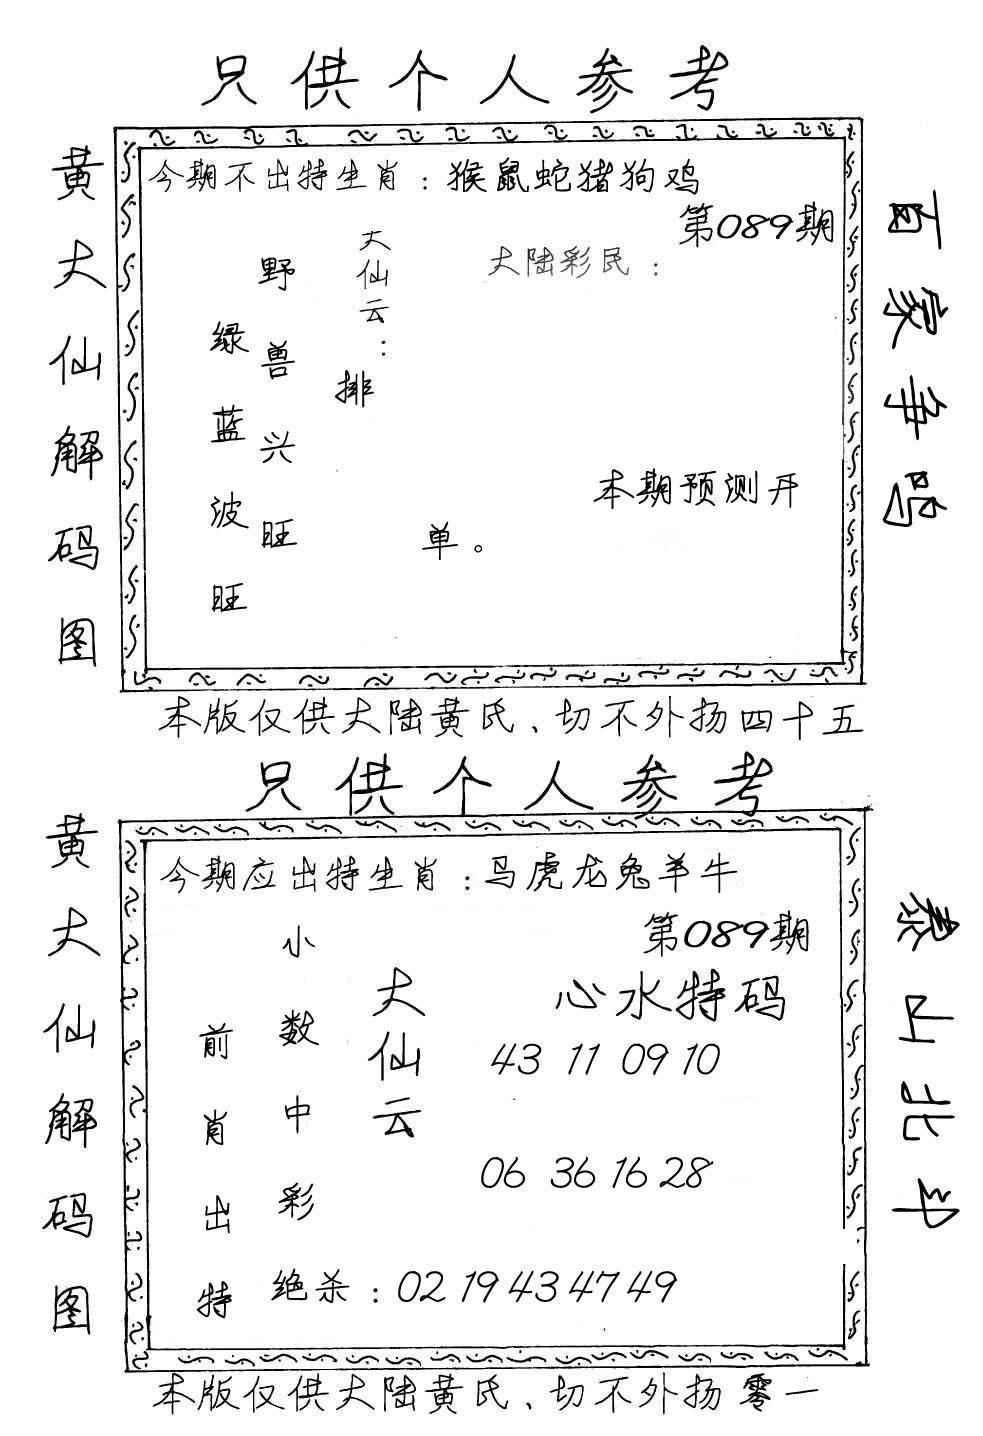 只供个人参考
黄大仙解码图
今期不出特生肖：猴鼠蛇猪狗鸡
第089期
大陆彩民：
大仙云：
排
野兽兴旺
绿蓝波旺
单。
本期预测开
百家争鸣
本版仅供大陆黄氏、切不外扬四十五
只供个人参考
黄大仙解码图
今期应出特生肖：马虎龙兔羊牛
第089期
心水特码
大仙云
小数中彩
前肖出特
43 11 09 10
06 36 16 28
绝杀：02 19 43 47 49
泰山北斗
本版仅供大陆黄氏、切不外扬零一